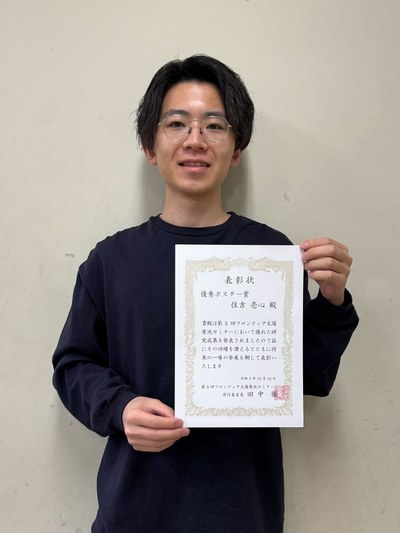 表彰状
優秀ポスター賞
住吉 壱心 殿
貴殿は第5回フロンティア太陽
電池セミナーにおいて優れた研
究成果を発表されましたので証
にその功績を讃えるとともに将
来の一層の発展を期して表彰い
たします
令和6年12月
第5回フロンティア太陽電池セミナー
実行委員長 田中